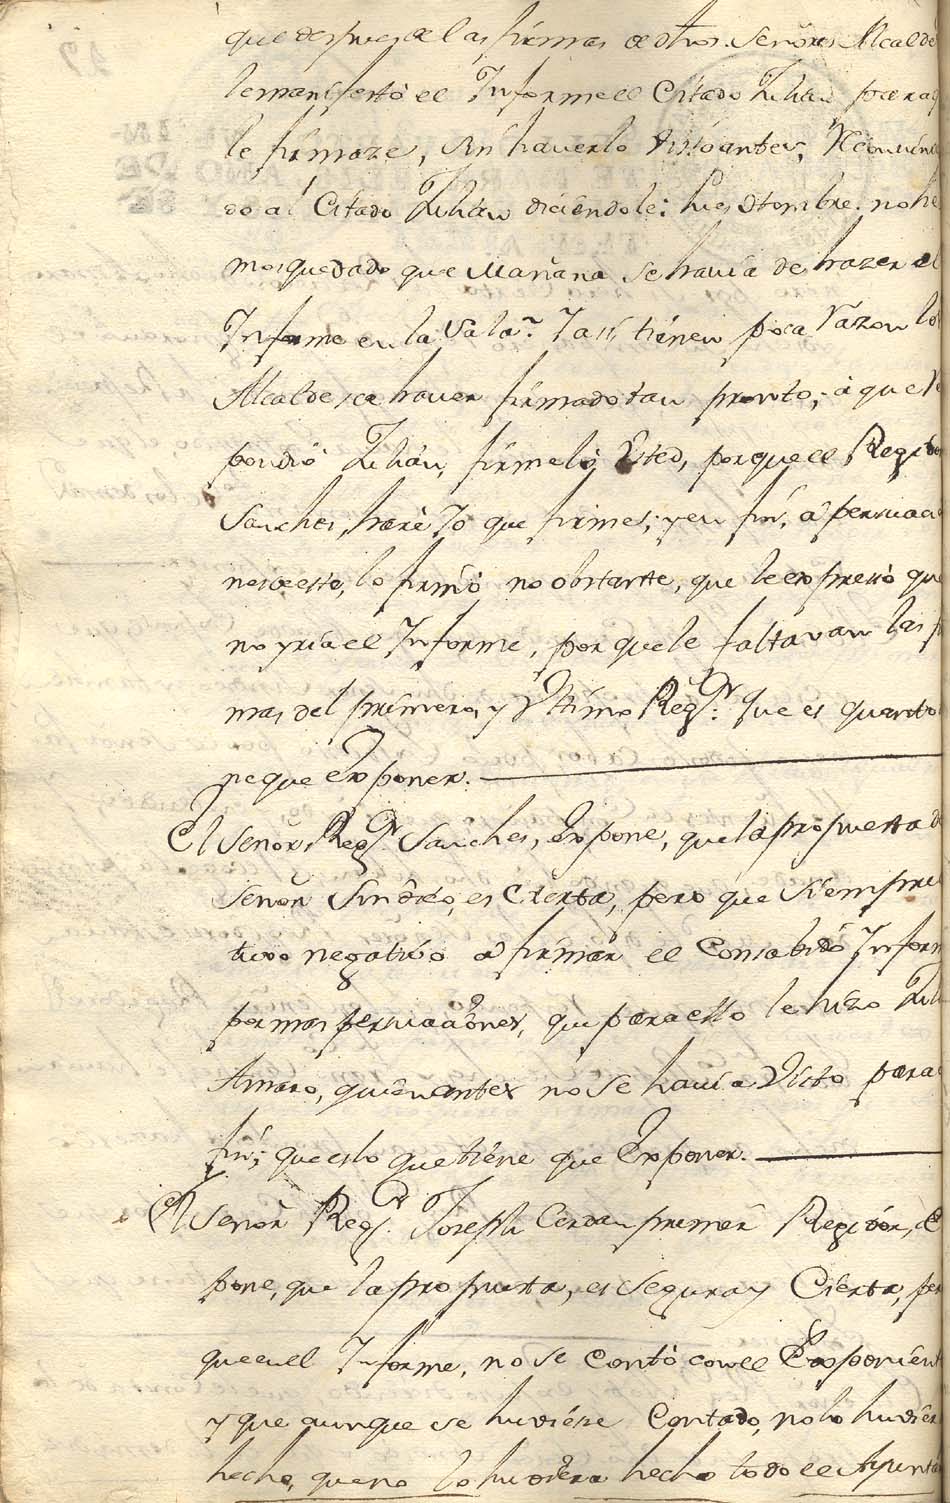 que despues de las firmas de dhos. Señores Alcalde
le manifestó el Informe el Citado Julian para q
le firmaze, sin haverlo visto antes, Reconvinien
do al Citado Julian diciendole: pues Hombre. no he
mos quedado que Mañana se havia de hazer el
Informe en la Sala? Y assi tienen poca razon los
Alcaldes de haver firmado tan pronto; à que Re
pondió Julian, firmelo Usted, porque el Regidor
Sanches, harè Yo que firme; y en fin, à persuacio
nes de este, lo firmó no obstante, que le expresò que
no yria el Informe, porque le faltavan las fi
mas del primero, y Ultimo Regr. que es quanto
ne que Exponer.
El Señor Regr. Sanches, Expone, que la propuesta de
Señor Sindico, es Cierta, pero que siempre
tuvo negativo à firmar el Consabido Inform
por mas persuaciones, que para ello le hizo Juli
Amaro, quien antes no se havia Visto para
fin; que es lo que tiene que Exponer.
El Señor Regr. Joseph Cerdan primer Regidor, E
pone, que la propuesta, es segura y Cierta, per
que en el Informe, no se Contò con el Exponient
y que aunque se huviese Contado, no lo huvier
hecho, que no lo huviera hecho todo el Ayunta